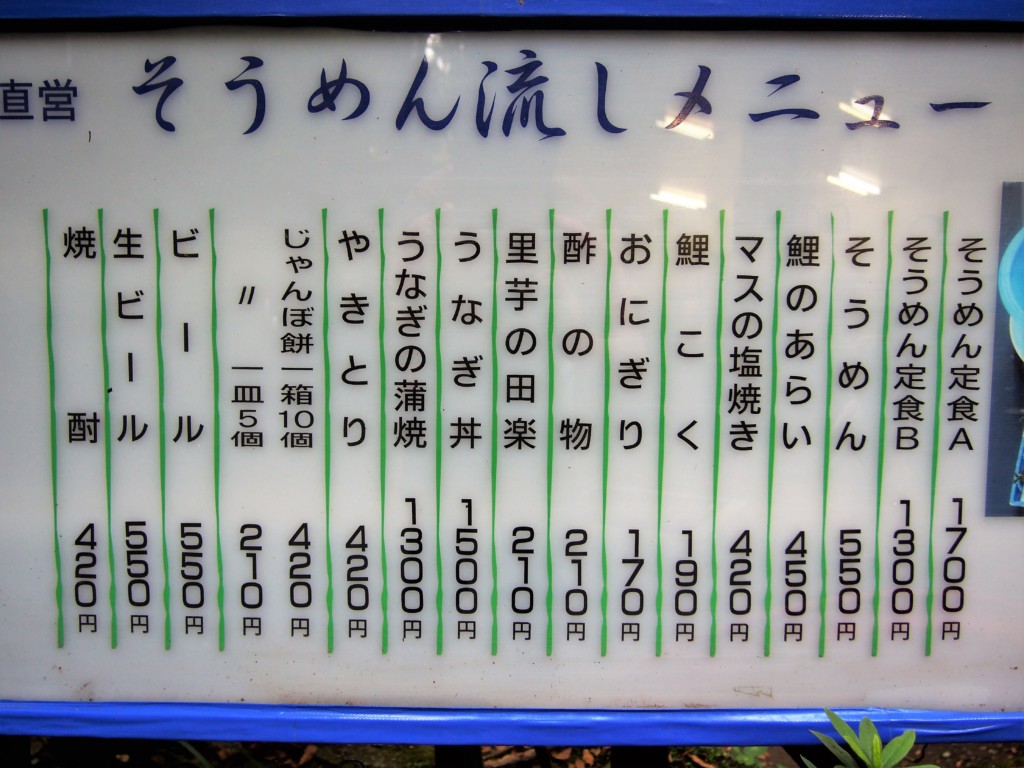 直営
そうめん流しメニュー
そうめん定食A 1700円
そうめん定食B 1300円
そうめん 550円
鯉のあらい 450円
マスの塩焼き 420円
鯉こく 190円
おにぎり 170円
酢の物 210円
里芋の田楽 210円
うなぎ丼 1500円
うなぎの蒲焼 1300円
やきとり 420円
じゃんぼ餅一箱10個 420円
〃 一皿5個 210円
ビール 550円
生ビール 550円
焼酎 420円